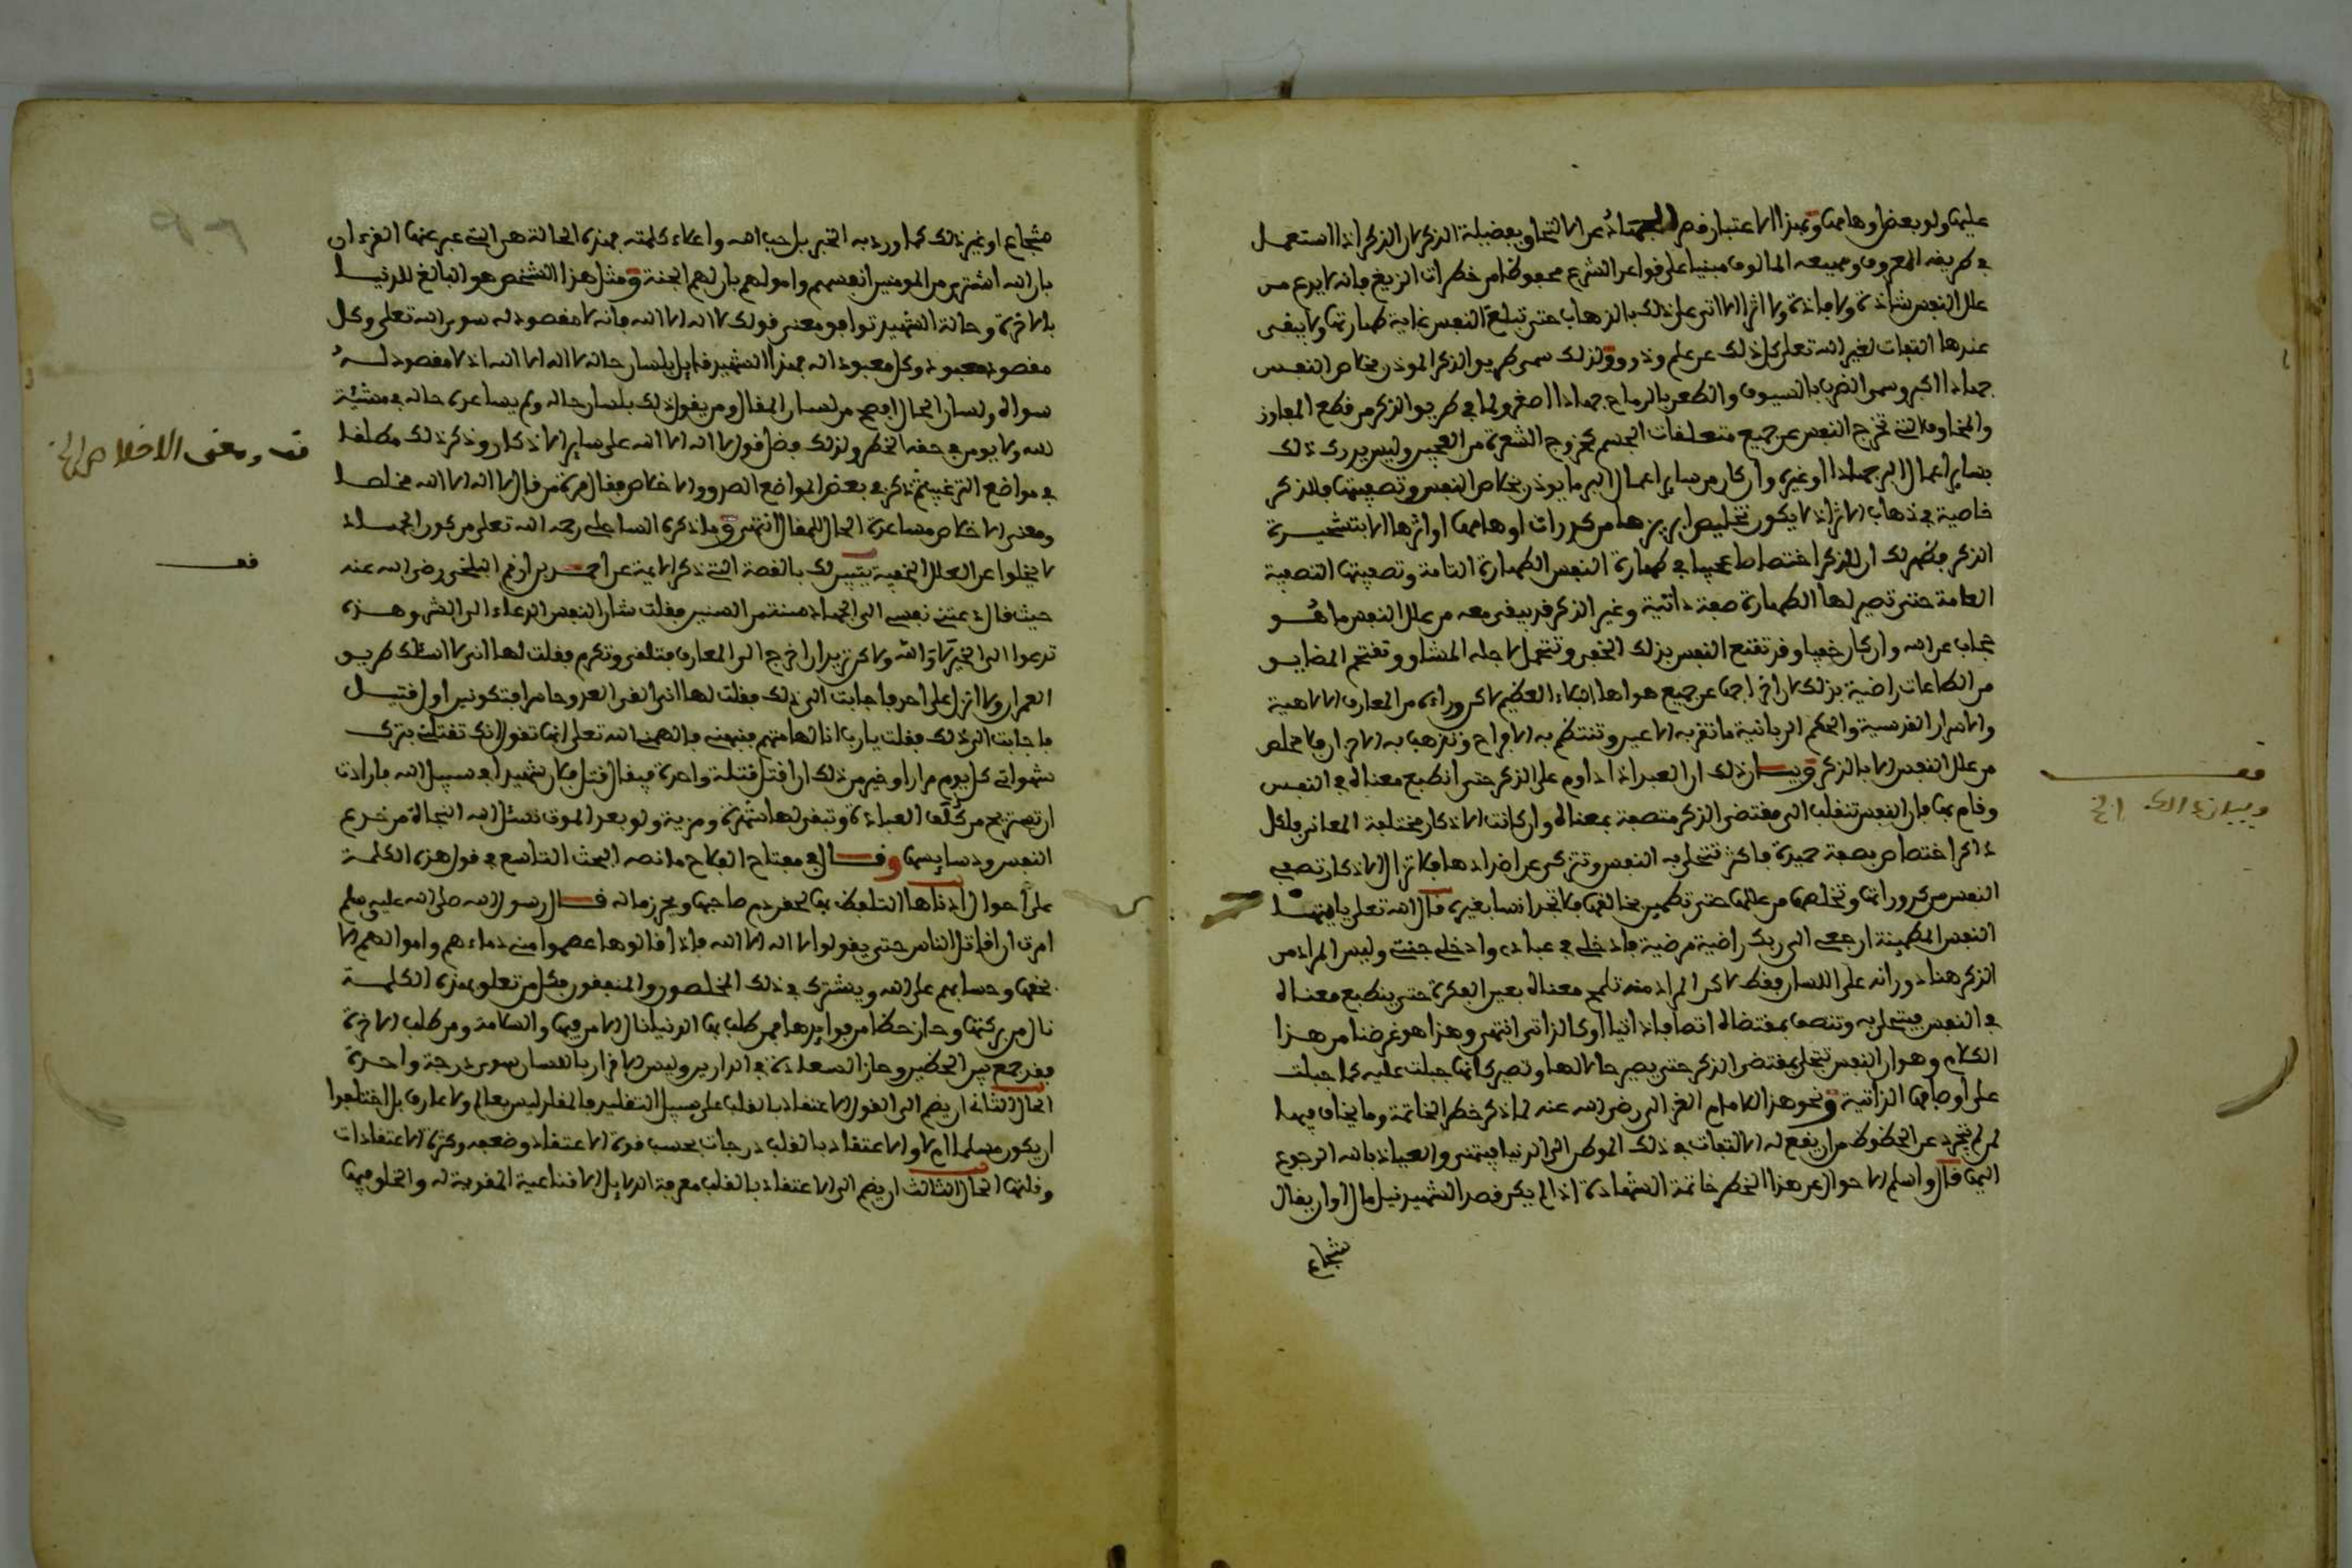 عليها ولو بعض اوهامها وبهذا الاعتبار فصر الجهاد عن الالتحاق بفضيلة الذكر لان الذكر اذا استعمل
في طريقه المعروف ومهيعه المالوف مبنيا على قواعد الشرع محفوظا من خطرات الزيغ فانه لا يدع من
علل النفس شاذة ولا فاذة ولا اثرا الا اتى على ذلك بالذهاب حتى تبلغ النفس غاية طهارتها ولا يبقى
عندها التفات لغير الله تعلى كل ذلك عن علم وذوق ولذلك سمى طريق الذكر الموذن بخلاص النفس
جهادا اكبر وسمى الضرب بالسيوف والطعن بالرماح جهادا اصغر ولما في طريق الذكر من قطع المفاوز
والمخاوف التي تخرج النفس عن جميع متعلقات الجسم كخروج الشعرة من العجين وليس يدرك ذلك
بساير اعمال البر جهادا او غيره وان كان من ساير اعمال البر ما يوذن بخلاص النفس وتصفيتها فللذكر
خاصية في ذهاب الاثر اذ لا يكون تخليص ابريزها من كدورات اوهامها او اثرها الا بتشحيرة
الذكر فظهر لك ان للذكر اختصاصا عجيبا في طهارة النفس الطهارة التامة وتصفيتها التصفية
العامة حتى تصير لها الطهارة صفة ذاتية وغير الذكر قد يبقى معه من علل النفس ما هو
حجاب عن الله وان كان خفيا وقد تقنع النفس بذلك الخفي وتتحمل لاجله المشاق وتقتحم المضايق
من الطاعات راضية بذلك لان اخراجها عن جميع هواها البلاء العظيم لاكن وراءه من المعارف الالاهية
والاسرار القدسية والحكم الربانية ما تقر به الاعين وتنتظم به الافراح وتذهب به الاحزان فلا مخلص
من علل النفس الا بالذكر وبيان ذلك ان العبد اذا داوم على الذكر حتى انطبع معناه في النفس
وقام بها فان النفس تنقلب الى مقتضى الذكر متصفة بمعناه وان كانت الاذكار مختلفة المعاني فلكل
ذكر اختصاص بصفة حميدة فاكثر تتحلى به النفس وتتزكى عن اضدادها فلا تزال الاذكار تصفي
النفس من كدوراتها وتخلصها من عللها حتى تطمين بخالقها فلا تجد انسا بغيره قال الله تعلى يا ايتها
النفس المطمينة ارجعي الى ربك راضية مرضية فادخلي في عبادي وادخلي جنتي وليس المراد من
الذكر هنا دورانه على اللسان فقط لاكن المراد منه تلمح معناه بعين الفكرة حتى ينطبع معناه
في النفس فيتحلى به وتتصف بمقتضاه اتصافا ذاتيا او كالذاتي انتهى وهذا هو غرضنا من هذا
الكلام وهو ان النفس تتحلى بمقتضى الذكر حتى يصير حالا لها وتصير كانها جبلت عليه كما جبلت
على اوصافها الذاتية ونحو هذا للامام الغزالي رضي الله عنه لما ذكر خطر الخاتمة وما يخاف فيها
لمن لم يتجرد عن الحظوظ من ان يقع له الالتفات في ذلك الموطن الى الدنيا فيتمنى والعياذ بالله الرجوع
اليها قال واسلم الاحوال عن هذا الخطر خاتمة الشهادة اذا لم يكن قصد الشهيد نيل مال او ان يقال
شجاع
وبيان ذلك الخ
شجاع او غير ذلك كما ورد به الخبر بل حب الله واعلاء كلمته فهذه الحالة هي التي عبر عنها القرءان
بان الله اشترى من المومنين انفسهم واموالهم بان لهم الجنة ومثل هذا الشخص هو البائع للدنيا
بالاخرة وحالة الشهيد توافق معنى قولك لا اله الا الله فانه لا مقصود له سوى الله تعلى وكل
مقصود معبود وكل معبود اله فهذا الشهيد قايل بلسان حاله لا اله الا الله اذ لا مقصود له
سواه ولسان الحال افصح من لسان المقال ومن يقول ذلك بلسان حاله ولم يساعده حاله في مشيئة
لله ولا يومن في حقه الخطر ولذلك فضل قول لا اله الا الله على ساير الاذكار وذكر ذلك مطلقا
في مواضع الترغيب ثم ذكر في بعض المواضع الصدق والاخلاص فقال مرة من قال لا اله الا الله مخلصا
ومعنى الاخلاص مساعدة الحال للمقال انتهى وما ذكره الساحلي رحمه الله تعلى من كون الجهاد
لا يخلوا عن العلل الخفية يتبين لك بالقصة التي ذكر الايمة عن احمد بن ارقم البلخي رضي الله عنه
حيث قال دعتني نفسي الى الجهاد سنتين فقلت شان النفس الدعاء الى الشر وهذه
تدعوا الى الخير لا والله ولاكن تريد ان اخرج الى المعارف فتلقى وتكرم فقلت لها اني لا اسلك طريق
العمران ولا انزل على احد فاجابت الى ذلك فقلت لها اني القى العدو حاسرا فتكوني اول قتيل
فاجابت الى ذلك فقلت يا رب انا لها متهم فنبهني فالهمني الله تعلى انها تقول انك تقتلني بترك
شهواتي كل يوم مرارا وخير من ذلك ان اقتل قتلة واحدة فيقال قتل فلان شهيدا في سبيل الله فارادت
ان تستريح من كلف العبادة وتبقى لها شهرة ومزية ولو بعد الموت نسئل الله النجاة من خدع
النفس ودسايسها وقال في مفتاح الفلاح ما نصه البحث التاسع في قول هذه الكلمة
على احوال ادناها التلفظ بها لحقن دم صاحبها ويحرز ماله قال رسول الله صلى الله عليه وسلم
امرت ان اقاتل الناس حتى يقولوا لا اله الا الله فاذا قالوها عصموا مني دماءهم واموالهم الا
بحقها وحسابهم على الله ويشترك في ذلك المخلصون والمنافقون فكل من تعلق بهذه الكلمة
نال من بركتها وحاز حظا من فوايدها فمن طلب بها الدنيا نال الامن فيها والسلامة ومن طلب الاخرة
فقد جمع بين الحظين وحاز السعادة في الدارين وليس الاقرار باللسان سوى درجة واحدة
الحال الثانية ان يضم الى القول الاعتقاد بالقلب على سبيل التقليد والمقلد ليس بعالم ولا عارف بل اختلفوا
ان يكون مسلما ام لا والاعتقاد بالقلب درجات بحسب قوة الاعتقاد وضعفه وكثرة الاعتقادات
وقلتها الحال الثالث ان يضم الى الاعتقاد بالقلب معرفة الدلايل الاقناعية المقوية له والخلو فيها
قف ومعنى الاخلاص الخ
قف